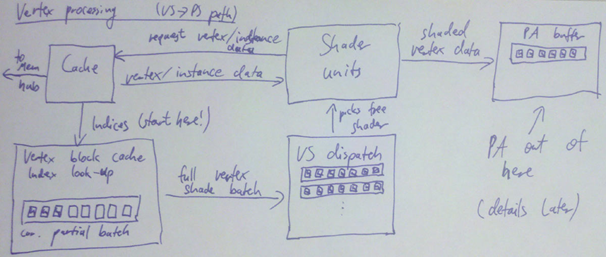 Vertex processing (VS→PS path)
to
Mem
hub
Cache
request vertex/instance
data
vertex/instance data
Shader
units
shaded
vertex data
PA buffer
Indices (start here!)
picks free
shader
Vertex block cache
Index look-up
cur. partial batch
full vertex
shade batch
VS dispatch
PA out of
here
(details later)